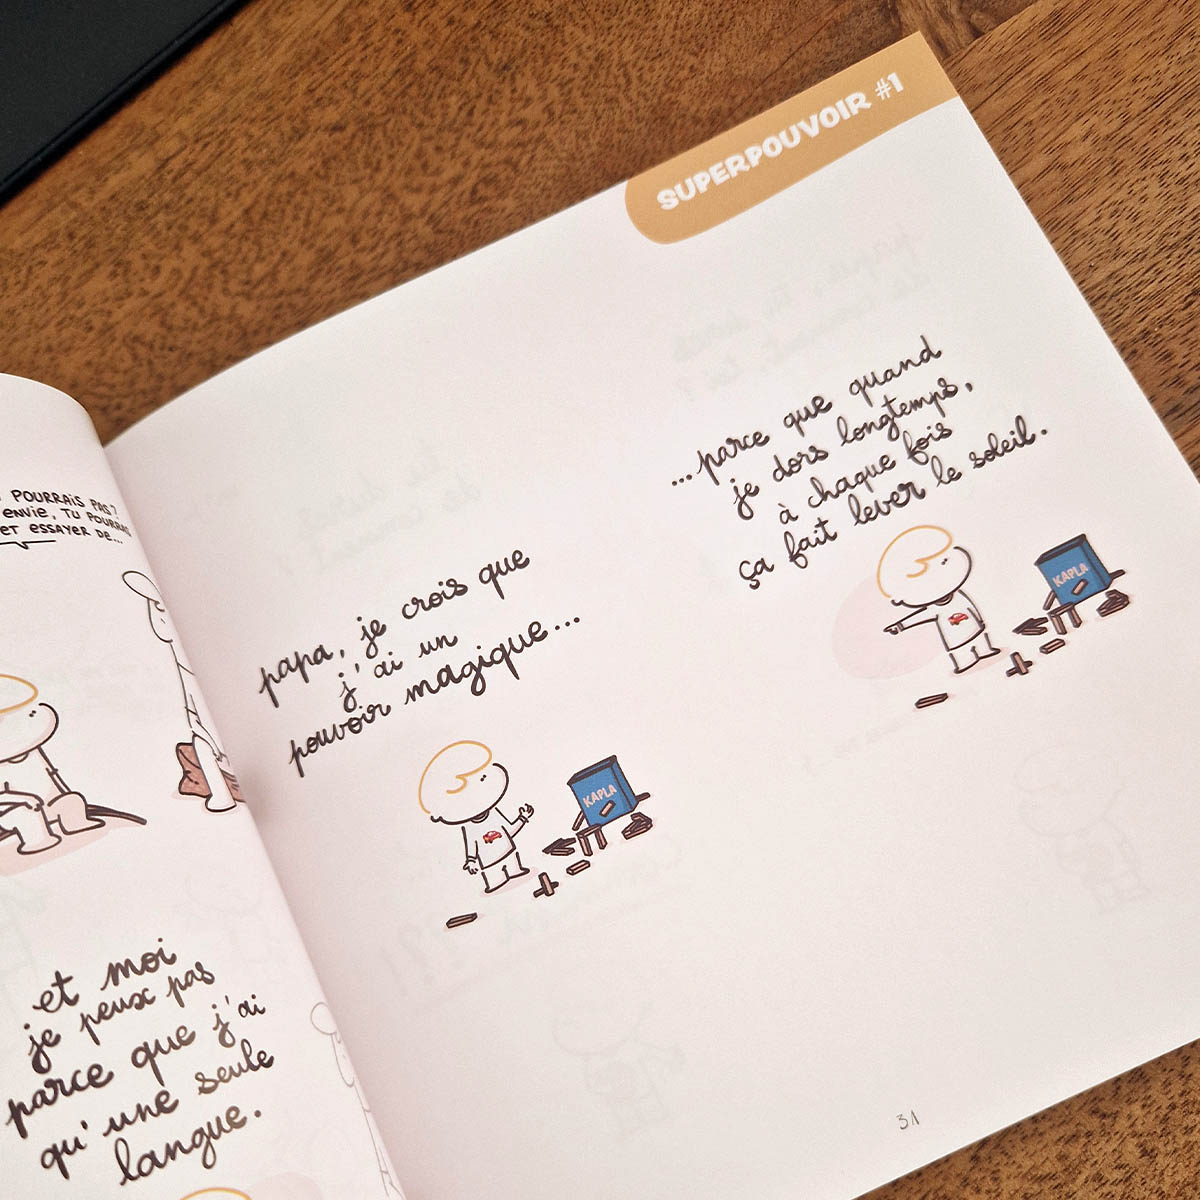 POURRAIS PAS ?
ENVIE, TU POURRAIS
ET ESSAYER DE...
et moi
je peux pas
parce que j'ai
qu'une seule
langue.
SUPERPOUVOIR #1
papa, je crois que
j'ai un
pouvoir magique...
KAPLA
...parce que quand
je dors longtemps,
à chaque fois
ça fait lever le soleil.
KAPLA
31